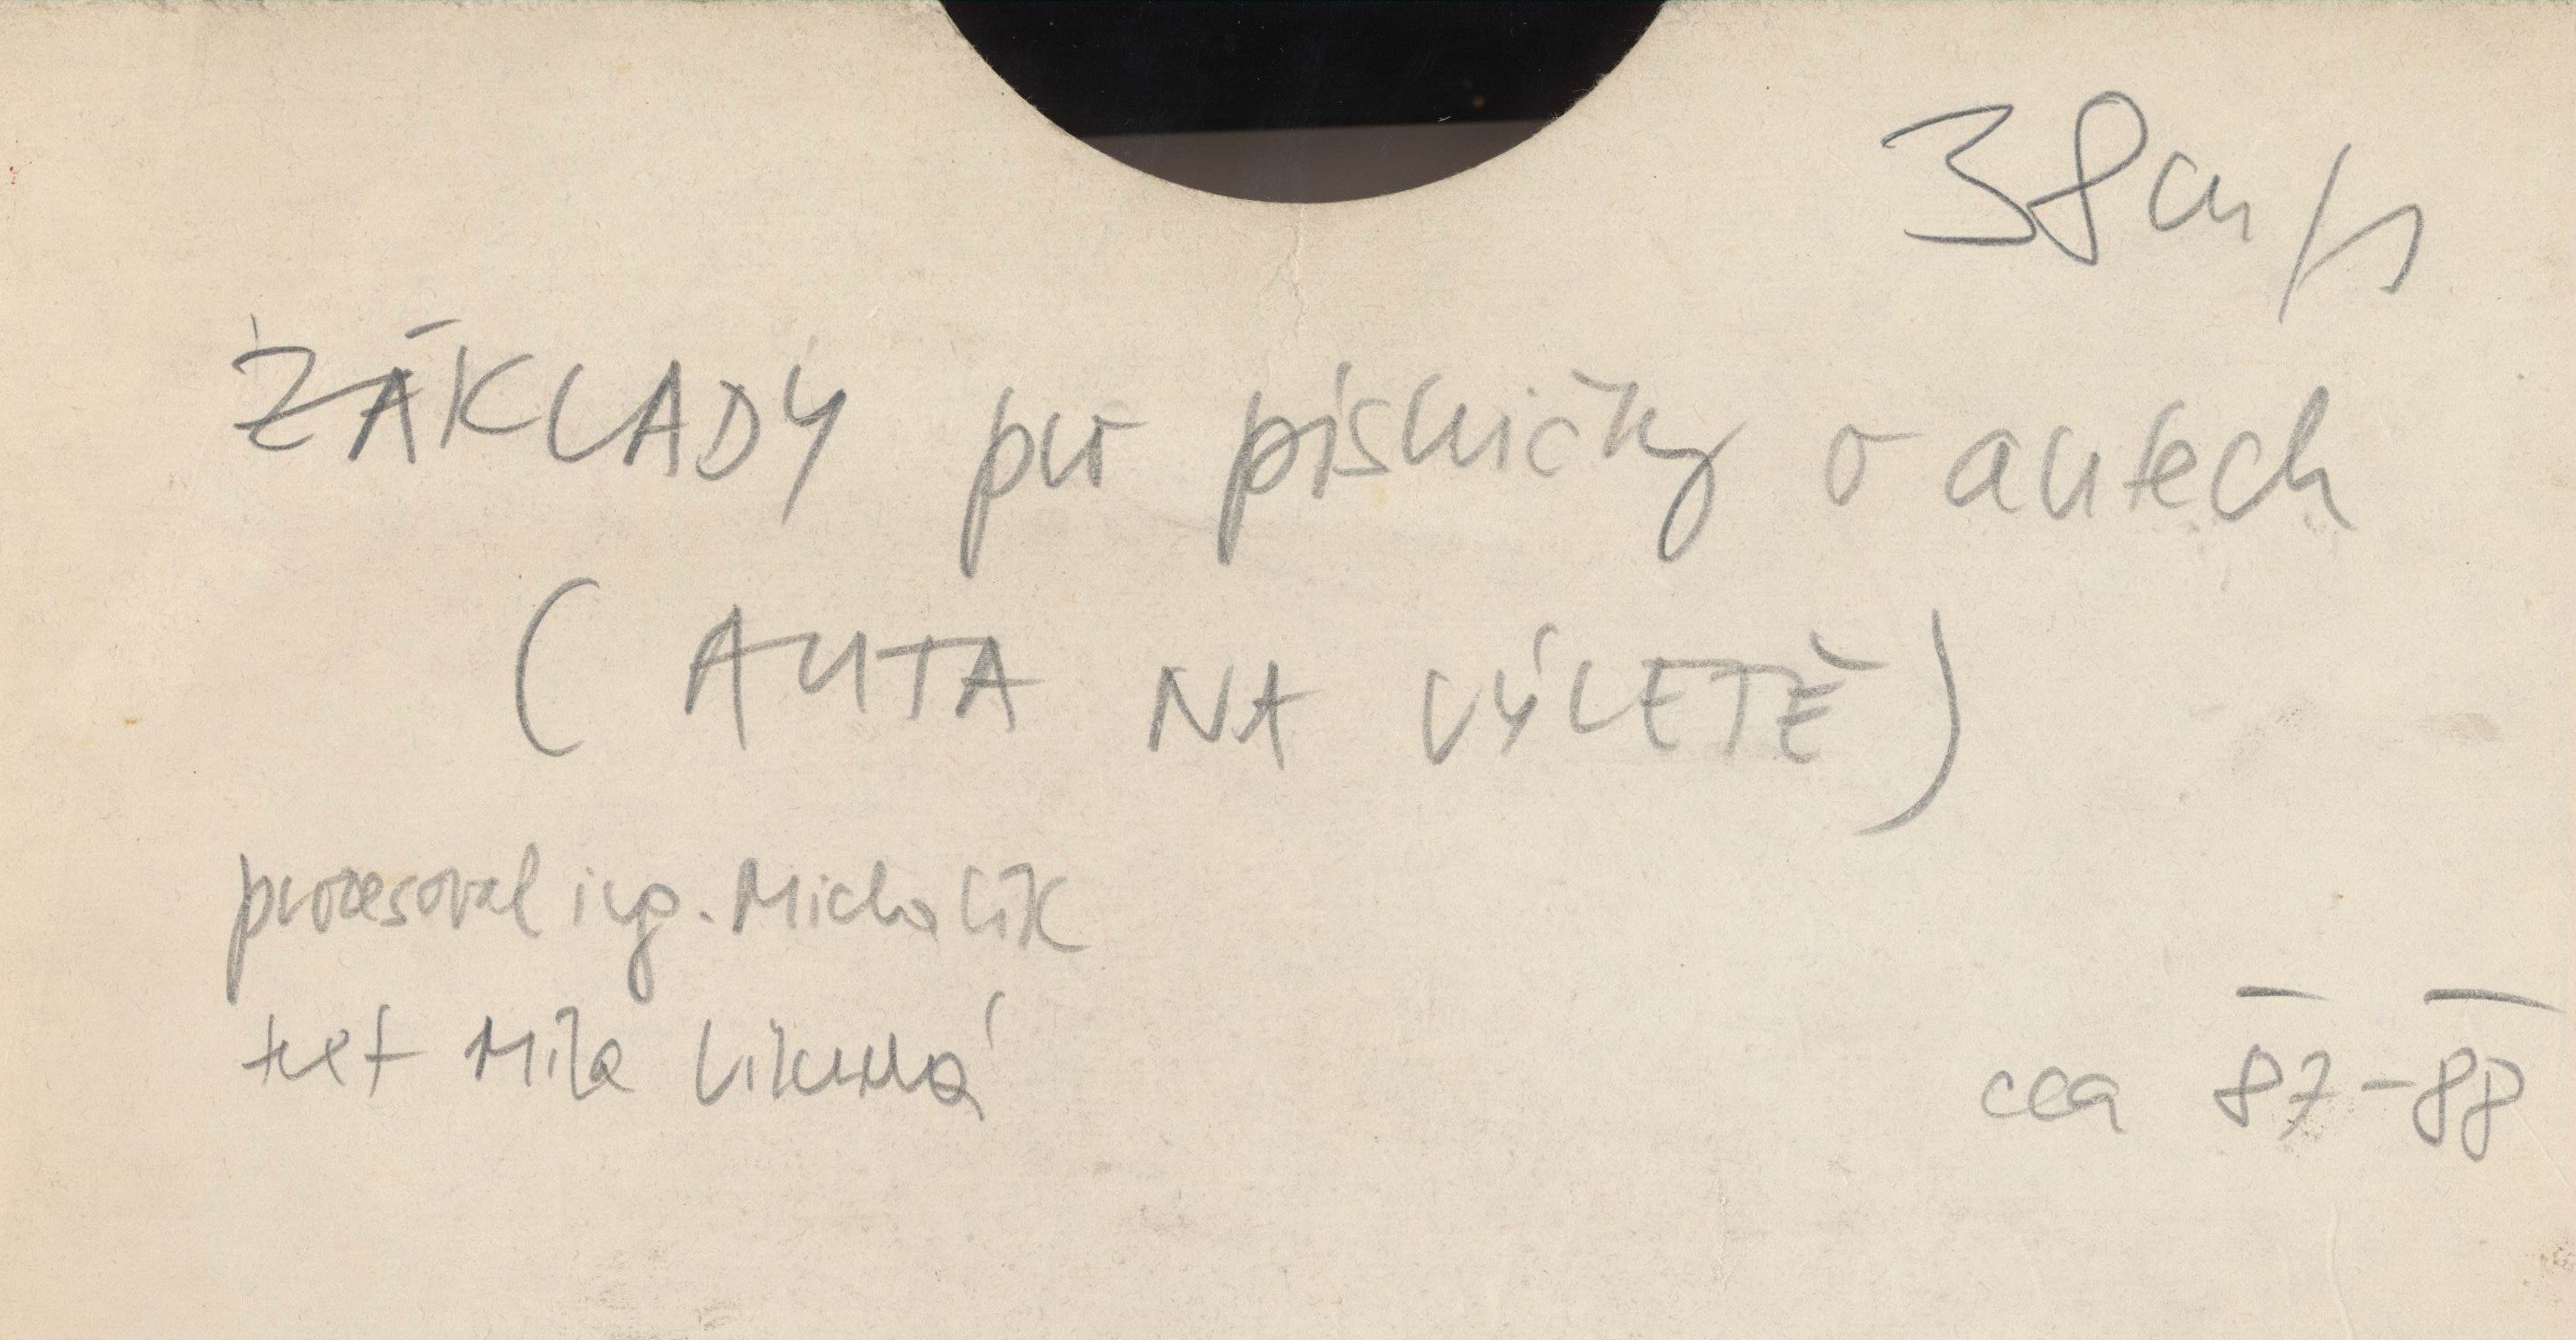 38 cm/s
ZÁKLADY pro písničky o autech
(AUTA NA VÝLETĚ)
procesoval ing. Michalík
text Mila
cca 87-88